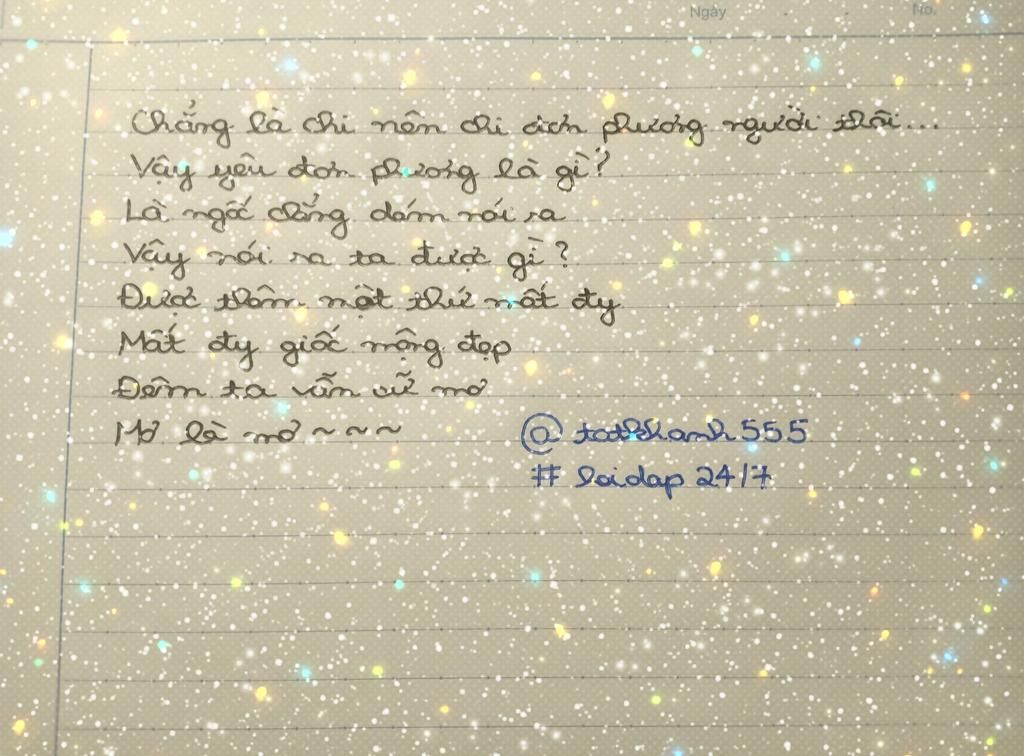 Ngày No.
Chẳng là chi nên chỉ đơn phương người thôi...
Vậy yêu đơn phương là gì?
Là ngốc chẳng dám nói ra
Vậy nói ra ta được gì?
Được thêm một thứ mất đy
Mất đy giấc mộng đẹp
Đêm ta vẫn cứ mơ
Mơ là mơ ~ ~ ~
@tatkhanh555
#loidap24/7